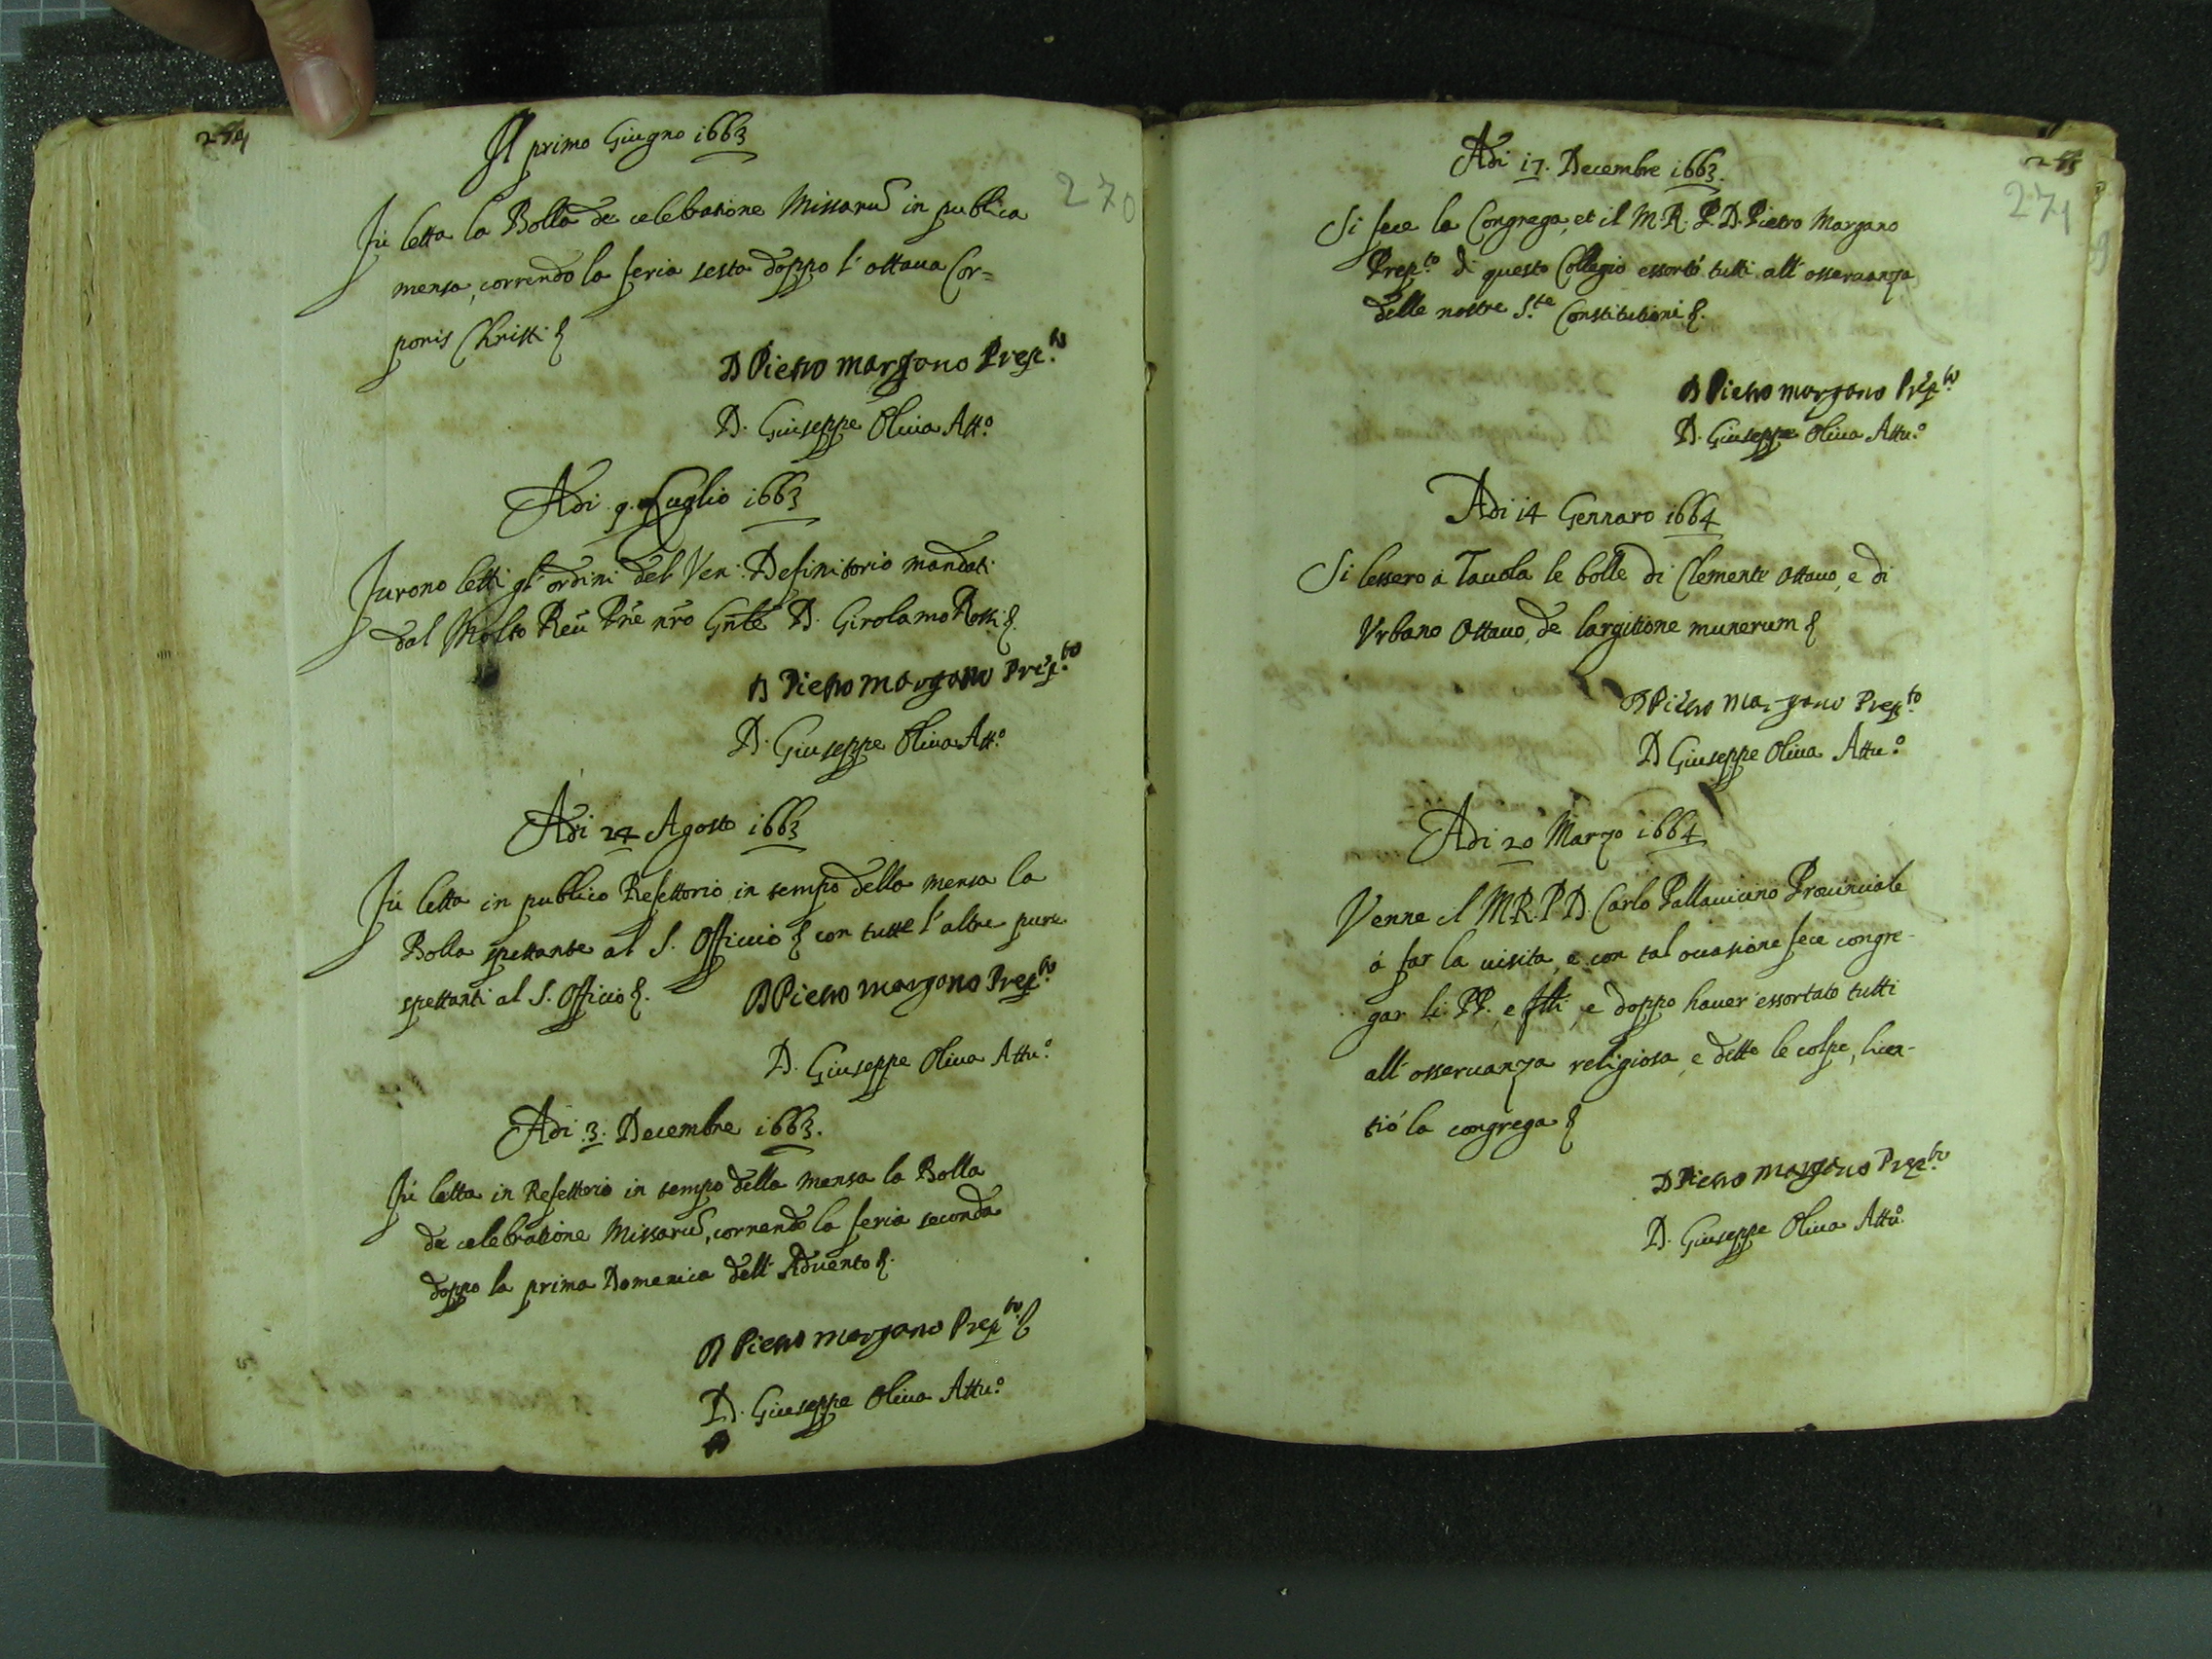 270
Il primo Giugno 1663
Fù letta la Bolla de celebratione Missarū in publica
mensa, correndo la feria sesta doppo l'ottaua Cor=
poris Christi
D Pietro Margano Prep.to
D. Giuseppe Oliua Att.o
Adi 9. Luglio 1663
Furono letti gl'ordini del Ven: Definitorio mandati
dal Molto Reū Pre nro Gnle D. Girolamo Rossi
D Pietro Margano Prep.to
D. Giuseppe Oliua Att.o
Adi 24 Agosto 1663
Fù letta in publico Refettorio in tempo della mensa la
Bolla spettante al S. Officio con tutte l'altre pure
spettanti al S. Officio.
D Pietro Margano Prep.to
D. Giuseppe Oliua Attu.o
Adi 3. Decembre 1663.
Fù letta in Refettorio in tempo della mensa la Bolla
de celebratione Missarū, correndo la feria seconda
doppo la prima Domenica dell'Aduento.
D Pietro Margano Prep.to
D. Giuseppe Oliua Attu.o
271
Adi 17. Decembre 1663.
Si fece la Congrega, et il M.R.P.D. Pietro Margano
Prep.to di questo Collegio essortò tutti all'osseruanza
delle nostre S.te Constitutioni.
D Pietro Margano Prep.to
D. Giuseppe Oliua Attu.o
Adi 14 Gennaro 1664
Si lessero à Tauola le bolle di Clemente Ottauo, e di
Vrbano Ottauo, de largitione munerum
D Pietro Margano Prep.to
D Giuseppe Oliua Attu.o
Adi 20 Marzo 1664
Venne il M.R.P.D. Carlo Pallauicino Prouinciale
à far la uisita, e con tal occasione fece congre-
gar li PP., e flli, e doppo hauer essortato tutti
all'osseruanza religiosa, e dette le colpe, licen-
tiò la congrega
D Pietro Margano Prep.to
D. Giuseppe Oliua Attu.o